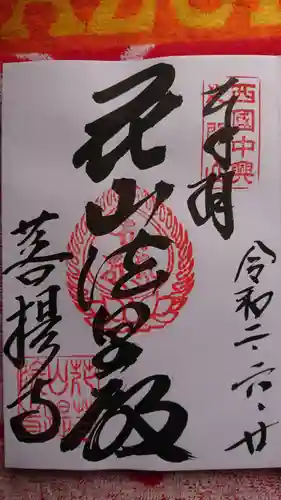 奉拝
令和二・六・廿
西國中興
花山法皇殿
菩提寺